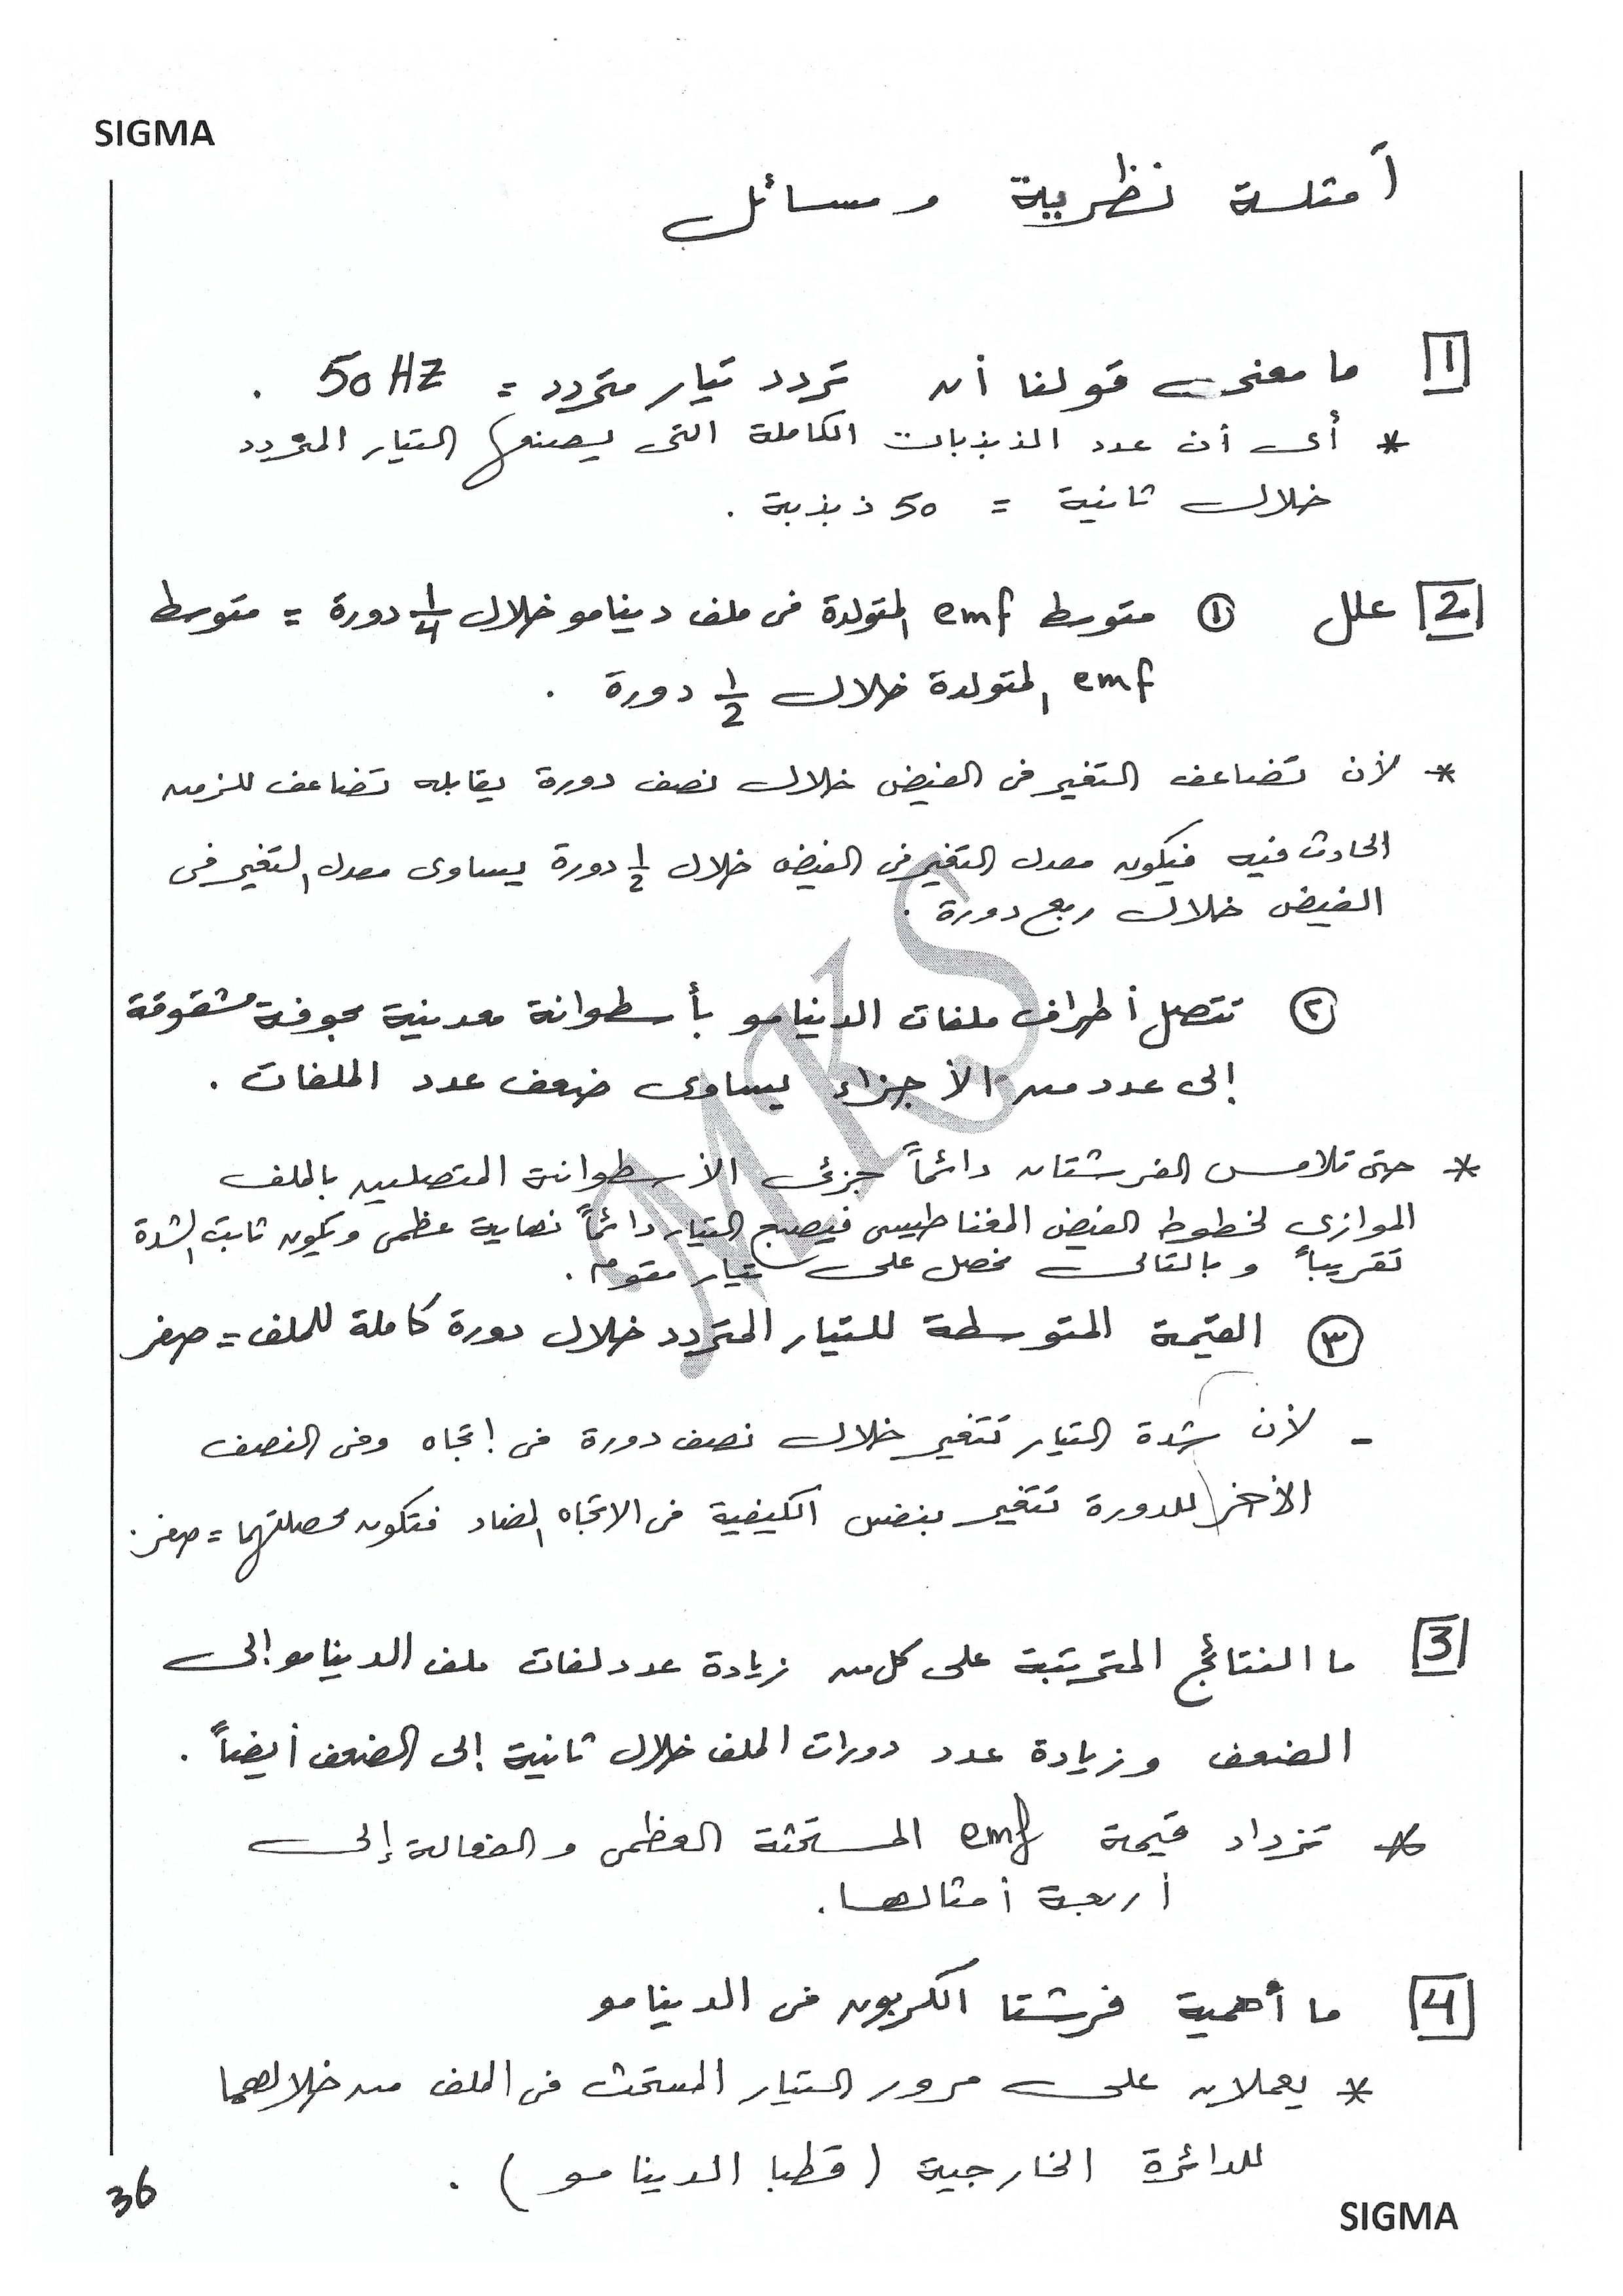 SIGMA
أمثلة نظرية ومسائل
1 ما معنى قولنا أن تردد تيار متردد = 50 HZ .
* أى أن عدد الذبذبات الكاملة التى يصنعها التيار المتردد
خلال ثانية = 50 ذبذبة .
2 علل ① متوسط emf المتولدة فى ملف دينامو خلال 1/4 دورة = متوسط
emf المتولدة خلال 1/2 دورة .
* لأن تضاعف التغير فى الفيض خلال نصف دورة يقابله تضاعف للزمن
الحادث فيه فيكون معدل التغير فى الفيض خلال 1/2 دورة يساوى معدل التغير فى
الفيض خلال ربع دورة .
② تتصل أطراف ملفات الدينامو بأسطوانة معدنية مجوفة مشقوقة
إلى عدد من الأجزاء يساوى ضعف عدد الملفات .
* حتى تلامس الفرشتان دائماً جزئى الأسطوانة المتصلين بالملف
الموازى لخطوط الفيض المغناطيسى فيصبح التيار دائماً نهاية عظمى ويكون ثابت الشدة
تقريباً وبالتالى نحصل على تيار مقوم .
③ القيمة المتوسطة للتيار المتردد خلال دورة كاملة للملف = صفر
- لأن شدة التيار تتغير خلال نصف دورة فى إتجاه وفى النصف
الأخر للدورة تتغير بنفس الكيفية فى الاتجاه المضاد فتكون محصلتهما = صفر .
3 ما النتائج المترتبة على كل من زيادة عدد لفات ملف الدينامو إلى
الضعف وزيادة عدد دورات الملف خلال ثانية إلى الضعف أيضاً .
* تزداد قيمة emf المستحثة العظمى والفعالة إلى
أربعة أمثالها .
4 ما أهمية فرشتا الكربون فى الدينامو
* يعملان على مرور التيار المستحث فى الملف من خلالهما
للدائرة الخارجية ( قطبا الدينامو ) .
36
SIGMA
MKS